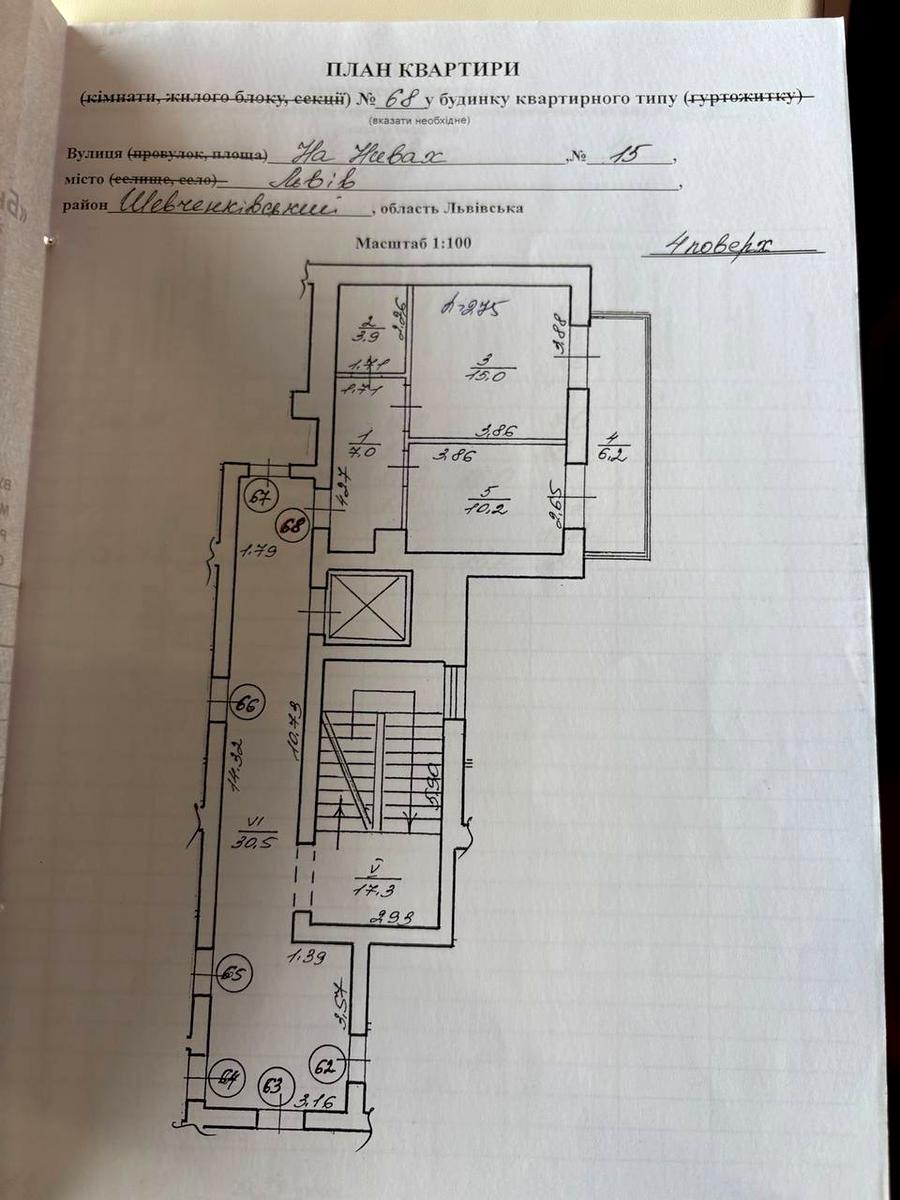 ПЛАН КВАРТИРИ
(кімнати, жилого блоку, секції) № 68 у будинку квартирного типу (гуртожитку)
(вказати необхідне)
Вулиця (провулок, площа) На Нивах , № 15 ,
місто (селище, село) Львів ,
район Шевченківський , область Львівська
Масштаб 1:100
4 поверх
h=2.75
2
3.9
2.26
1.71
1.71
3
15.0
3.88
3.86
3.86
1
7.0
4.27
4
6.2
5
10.2
2.65
67
68
1.79
66
10.73
14.32
5.90
VI
30.5
V
17.3
2.93
1.39
65
3.57
64
63
62
3.16